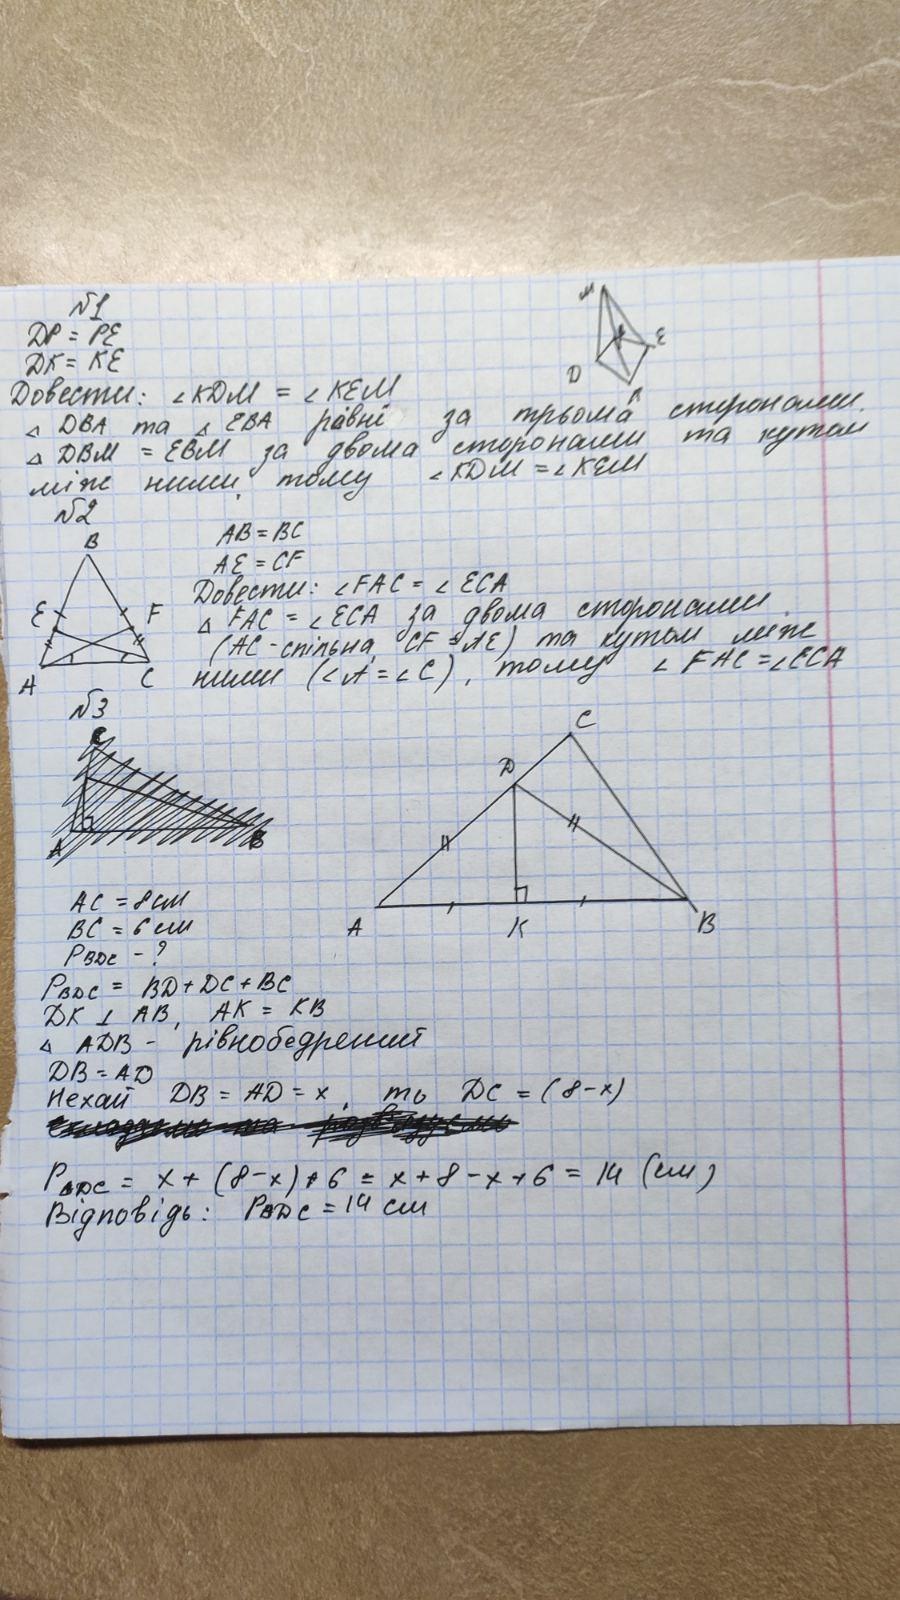 №1
DP = PE
DK = KE
Довести: ∠KDM = ∠KEM
△ DBA та △ EBA рівні за трьома сторонами.
△ DBM = EBM за двома сторонами та кутом
між ними, тому ∠KDM = ∠KEM
M
K
E
D
P
№2
AB = BC
AE = CF
Довести: ∠FAC = ∠ECA
△ FAC = ∠ECA за двома сторонами
(AC - спільна, CF = AE) та кутом між
ними (∠A = ∠C), тому ∠FAC = ∠ECA
B
E F
A C
№3
C
D
A K B
AC = 8 см
BC = 6 см
P BDC - ?
P BDC = BD + DC + BC
DK ⊥ AB, AK = KB
△ ADB - рівнобедрений
DB = AD
Нехай DB = AD = x, то DC = (8 - x)
P BDC = x + (8 - x) + 6 = x + 8 - x + 6 = 14 (см)
Відповідь: P BDC = 14 см